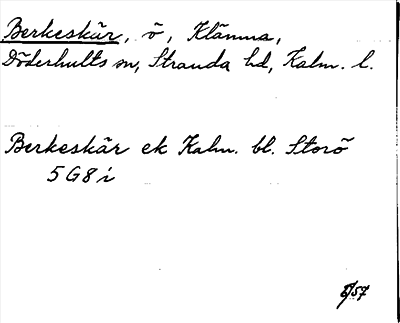 Berkeskär, ö, Klämma,
Döderhults sn, Stranda hd, Kalm. l.
Berkeskär ek Kalm. bl. Storö
5 G 8 i
/57